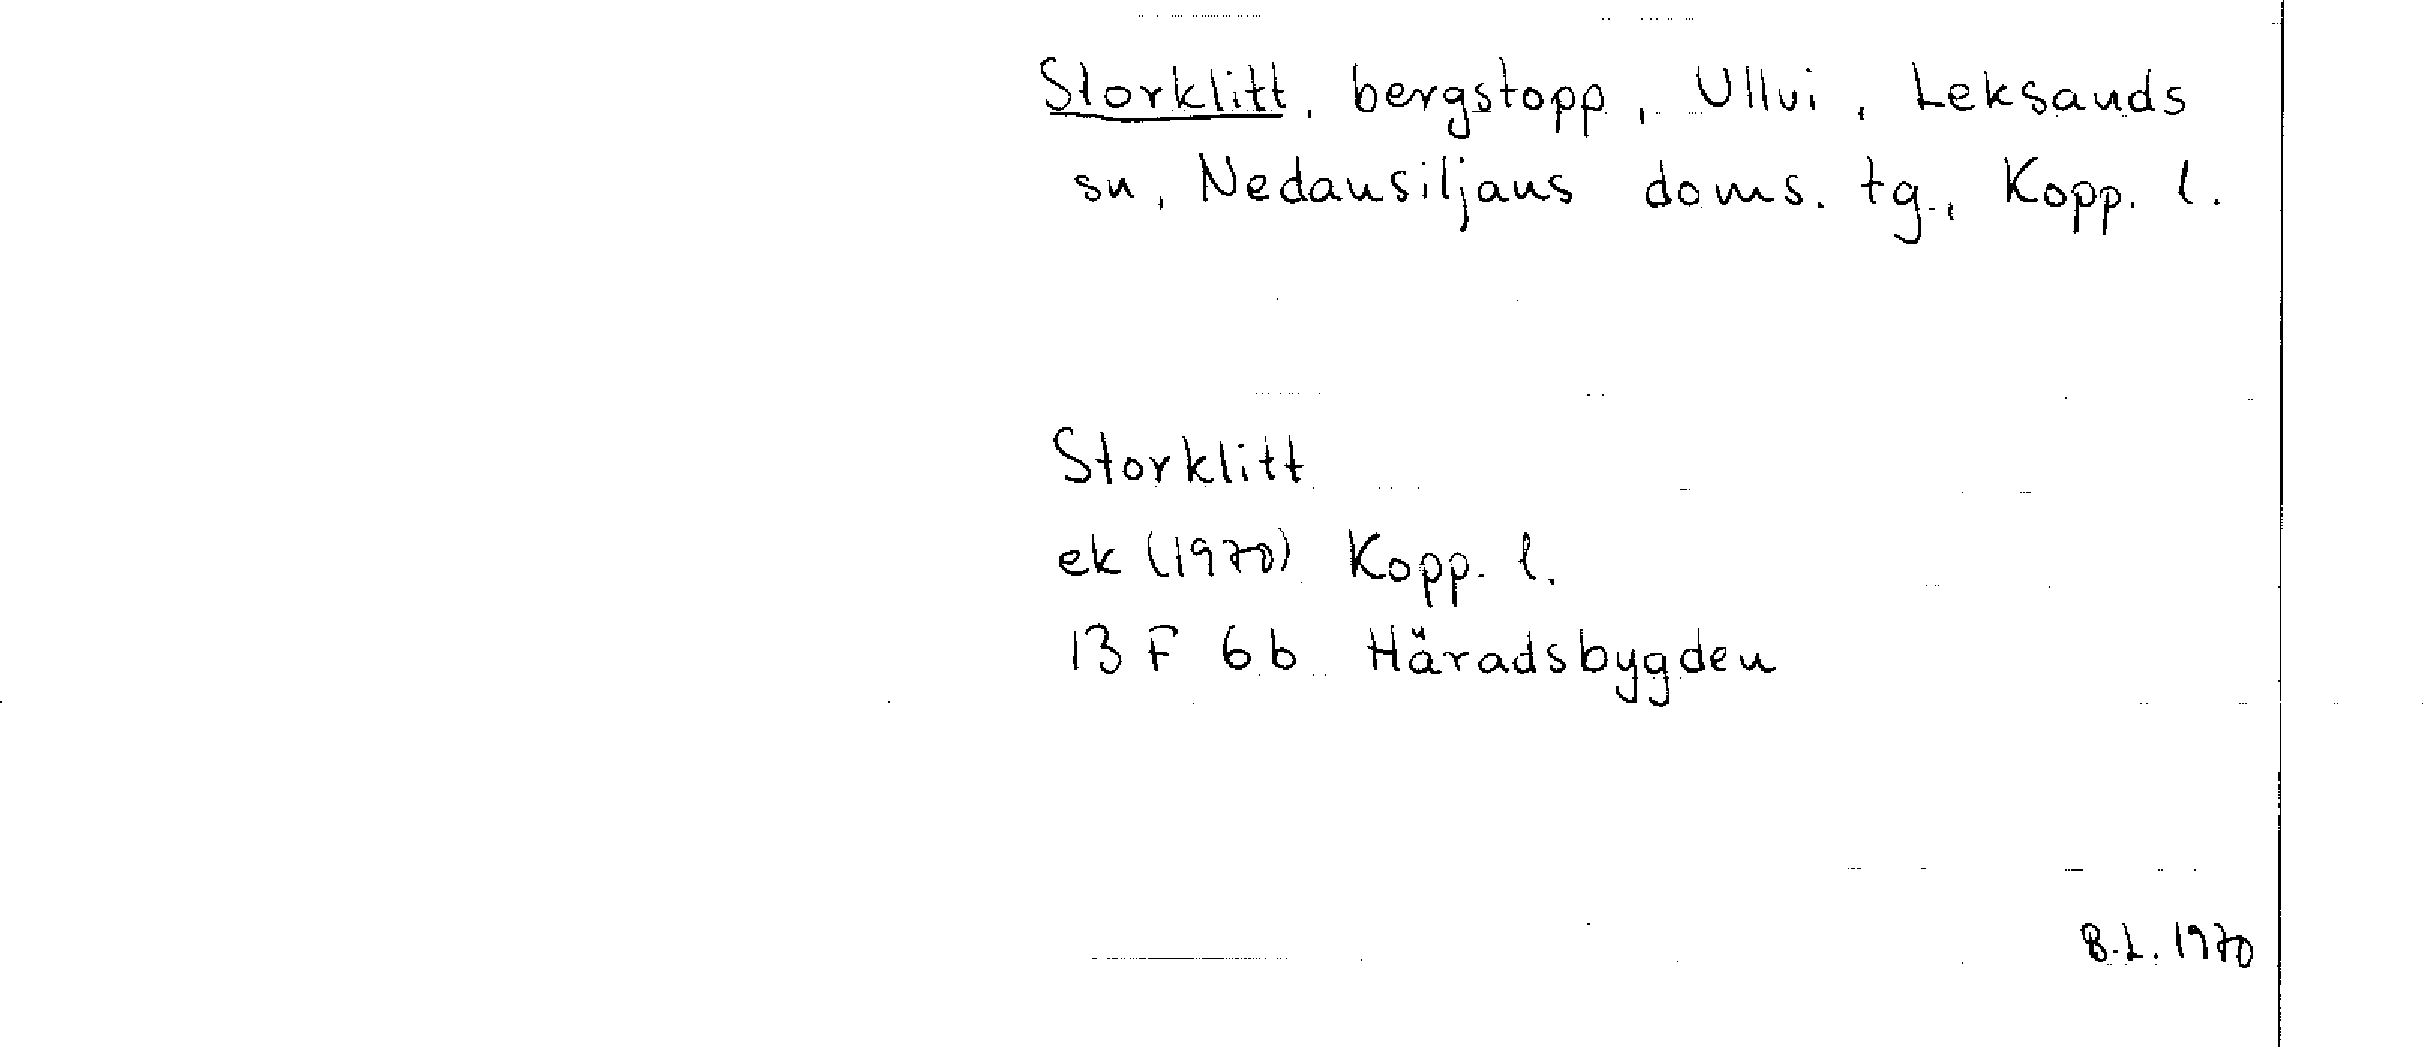 Storklitt, bergstopp, Ullvi, Leksands
sn, Nedansiljans doms. tg., Kopp. l.
Storklitt
ek (1970) Kopp. l.
13 F 6b Häradsbygden
B.L. 1970